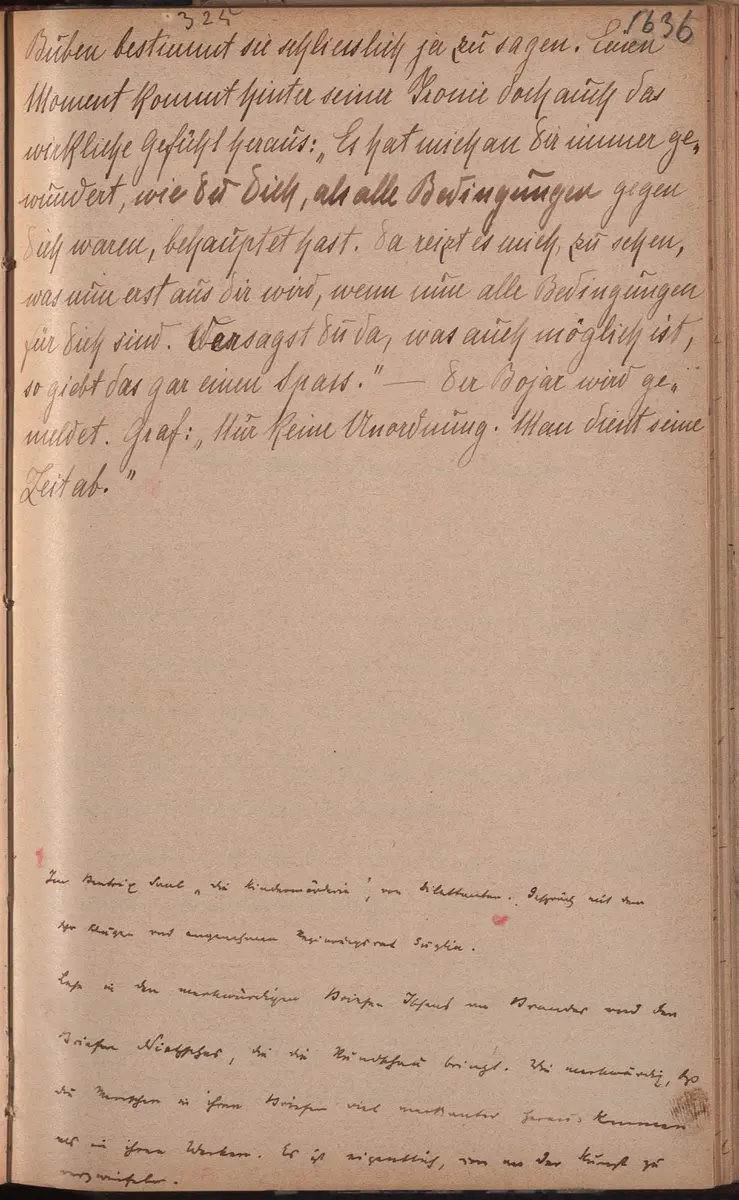 324
1636
Buben bestimmt sie schliesslich ja zu sagen. Einen
Moment kommt hinter seiner Ironie doch auch das
wirkliche Gefühl heraus: „Es hat mich an dir immer ge„
wundert, wie du dich, als alle Bedingungen gegen
dich waren, behauptet hast. Da reizt es mich, zu sehen,
was nun erst aus dir wird, wenn nun alle Bedingungen
für dich sind. Versagst du da, was auch möglich ist,
so giebt das gar einen Spass." — Der Bojar wird ge„
meldet. Graf: „Nur keine Unordnung. Man dient seine
Zeit ab."
Im Beatrix Saal „die Kindermörderin", von Dilettanten. Gespräch mit dem
sehr klugen und angenehmen Regierungsrat Suglia.
Lese in den merkwürdigen Briefen Ibsens an Brandes und den
Briefen Nietzsches, die die Rundschau bringt. Wie merkwürdig, dass
die Menschen in ihren Briefen viel markanter heraus kommen
als in ihren Werken. Es ist eigentlich, um an der Kunst zu
verzweifeln.